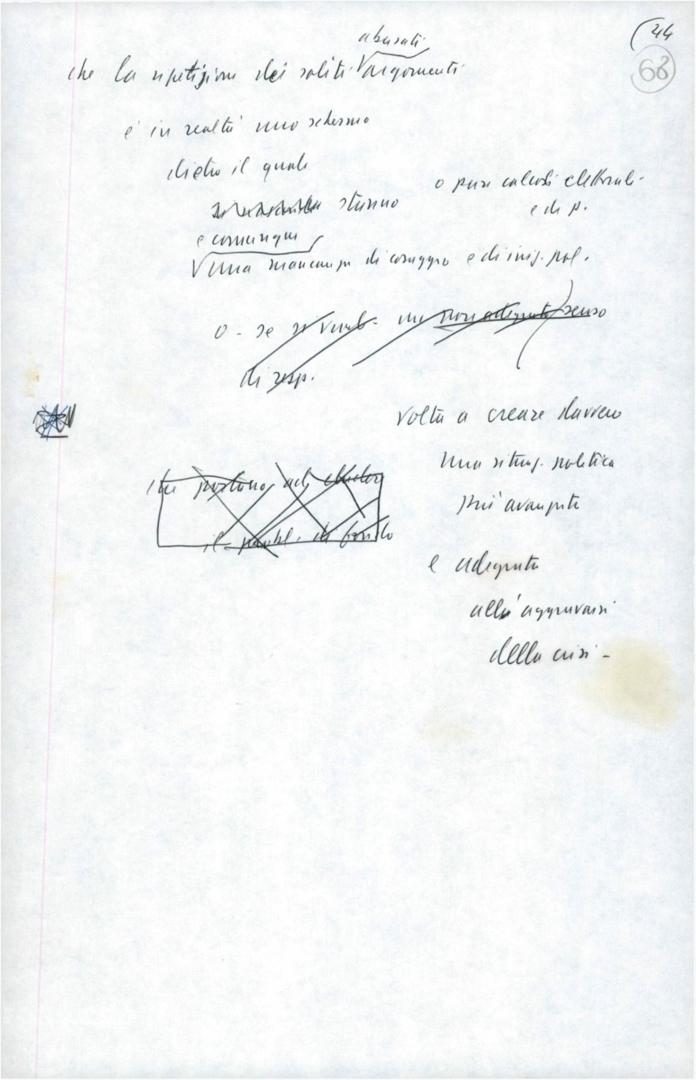 (44
68
abusati
che la ripetizione dei soliti argomenti
è in realtà uno schermo
dietro il quale
stanno
o puri calcoli elettorali
e di p.
e comunque
una mancanza di coraggio e di iniz. pol.
o - se si vuole - un non adeguato senso
di resp.
volta a creare davvero
una situaz. politica
più avanzata
che portano ad eludere
il probl. di fondo
e adeguata
all'aggravarsi
della crisi -